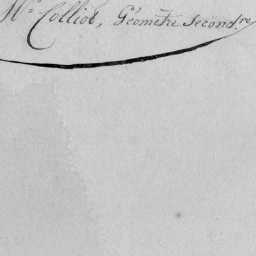 Mr Colliot, Géometre Secondre